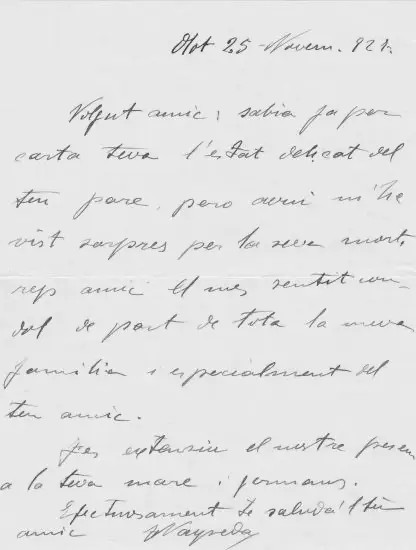 Olot 25 Novem. 921.
Volgut amic; sabia ja per
carta teva l'estat delicat del
teu pare, pero avui m'he
vist sorpres per la seva mort,
rep amic el mes sentit con-
dol de part de tota la meva
familia i especialment del
teu amic.
Fes extensiu el nostre pesem
a la teva mare i germans.
Efectuosament te saluda l teu
amic Vayreda